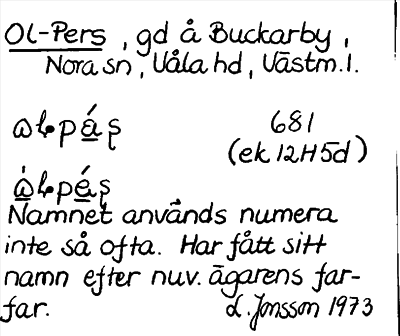 Ol-Pers, gd å Buckarby,
Nora sn, Våla hd, Västm. l.
681
(ek 12H5d)
Namnet används numera
inte så ofta. Har fått sitt
namn efter nuv. ägarens far-
far. L. Jonsson 1973